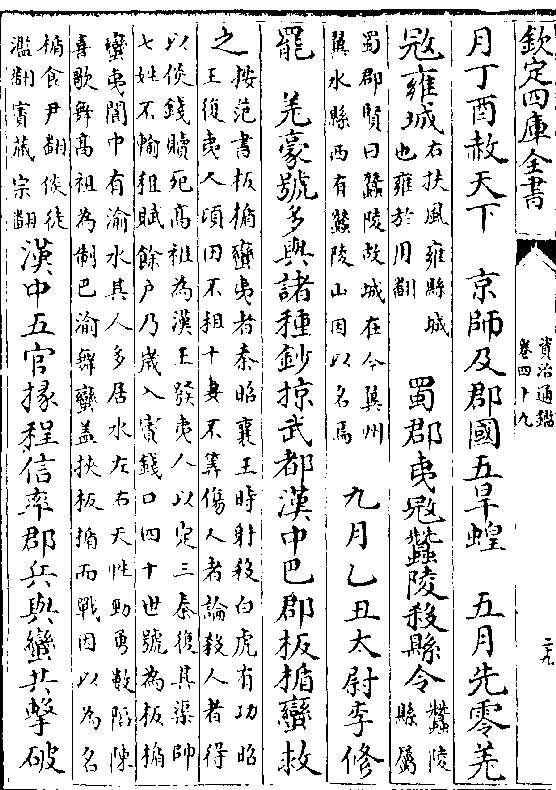 欽定四庫全書
資治通鑑
卷四十九
二九
月丁酉赦天下 京師及郡國五旱蝗 五月先零羌
寇雍城
右扶風雍縣城
也雍於用翻
蜀郡夷寇蠶陵殺縣令
蠶陵
縣屬
蜀郡賢曰蠶陵故城在今翼州
翼水縣西有蠶陵山因以名焉
九月乙丑太尉李修
罷 羌豪號多與諸種鈔掠武都漢中巴郡板楯蠻救
之
按范書板楯蠻夷者秦昭襄王時射殺白虎有功昭
王復夷人頃田不租十妻不筭傷人者論殺人者得
以倓錢贖死高祖為漢王發夷人以定三秦復其渠帥
七姓不輸租賦餘户乃歲入賨錢口四十世號為板楯
蠻夷閬中有渝水其人多居水左右天性勁勇數陷陳
喜歌舞高祖為制巴渝舞蠻盖挾板楯而戰因以為名
楯食尹翻倓徒
濫翻賨藏宗翻
漢中五官掾程信率郡兵與蠻共擊破